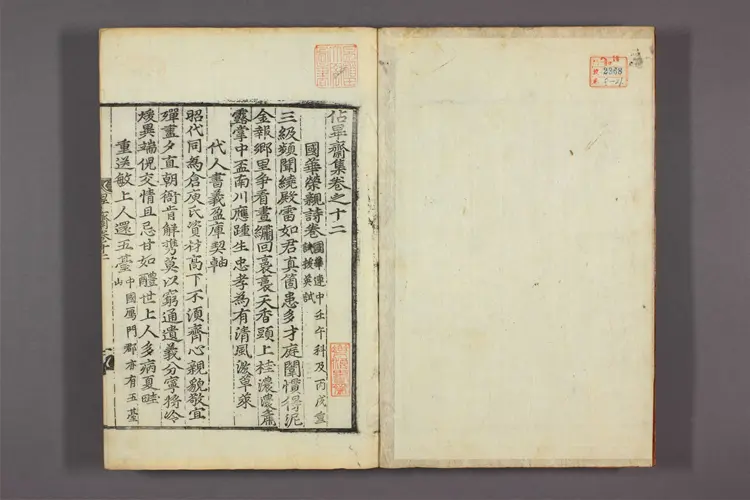 佔畢齋集卷之十二
國華榮親詩卷 國華連中壬午科及丙戌重試拔英試
三級頻聞繞殿雷如君真箇患多才庭闈慣得泥
金報鄉里爭看晝繡回裛裛天香頭上桂濃濃膏
露掌中盃南川應踵生忠孝為有清風激草萊
代人書義盈庫契軸
昭代同為倉庾氏資材高下不須齊心親貌敬宜
殫晝夕直朝衙肯解携莫以窮通遺義分寧將冷
煖異端倪交情且忌甘如醴世上人多病夏畦
重送敏上人還五臺山 中國鴈門郡亦有五臺
2368
5-21